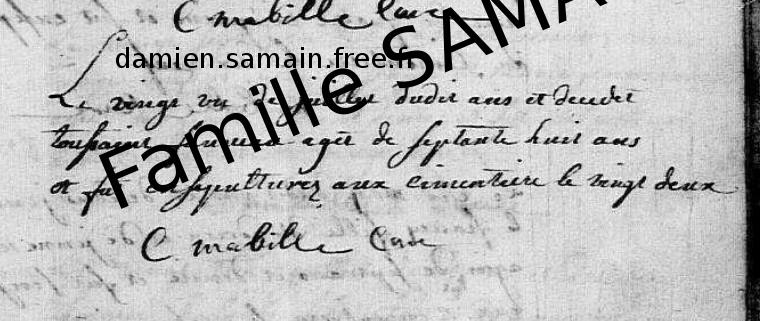 C mabille Cure
damien.samain.free.fr
Famille SAMA
Le vingt un de juillet dudit ans et decedet
toussaint agée de septante huit ans
et fut ensepulturez aux cimentiere le vingt deux
C mabille Cure